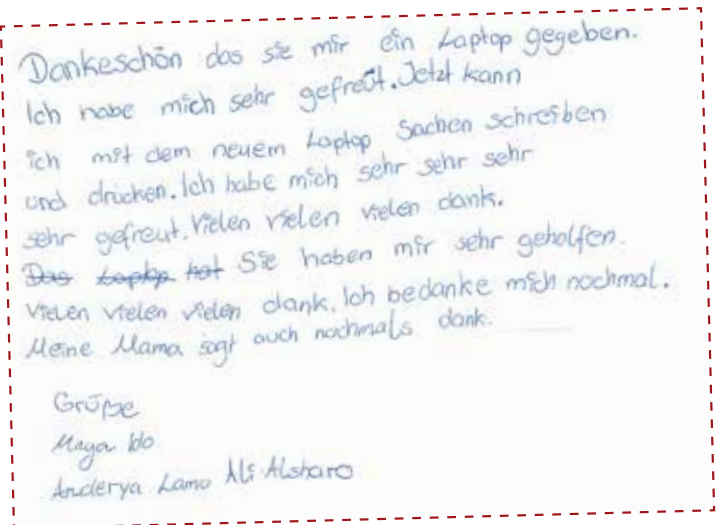 Dankeschön das sie mir ein Laptop gegeben.
Ich habe mich sehr gefreut. Jetzt kann
ich mit dem neuem Laptop Sachen schreiben
und drücken. Ich habe mich sehr sehr sehr
sehr gefreut. Vielen vielen vielen dank.
Das Laptop hat Sie haben mir sehr geholfen.
vielen vielen vielen dank. Ich bedanke mich nochmal.
Meine Mama sagt auch nochmals dank.
Grüße
Maya Ido
Anderya Lamo Ali Alsharo